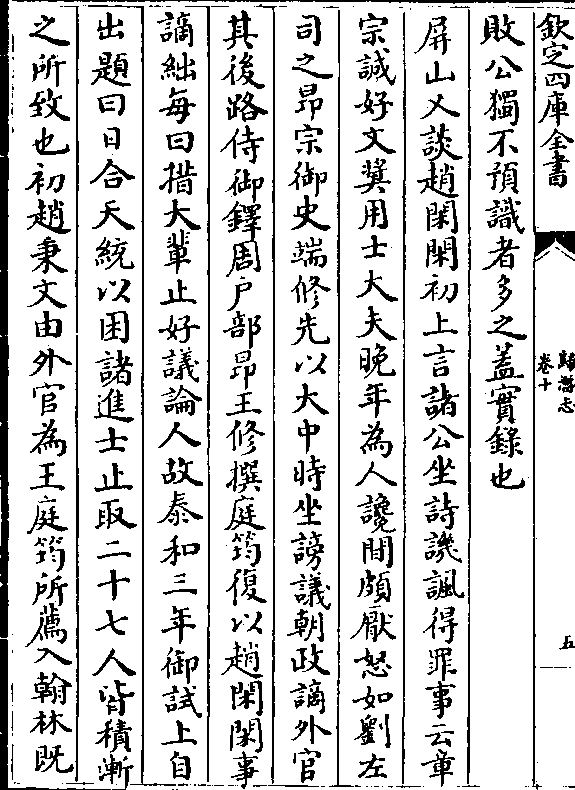 欽定四庫全書
歸潛志
卷十
五
敗公獨不預識者多之蓋實錄也
屏山又談趙閑閑初上言諸公坐詩譏諷得罪事云章
宗誠好文奬用士大夫晚年為人讒間頗厭怒如劉左
司之昂宗御史端修先以大中時坐謗議朝政謫外官
其後路侍御鐸周户部昂王修撰庭筠復以趙閑閑事
謫絀每曰措大輩止好議論人故泰和三年御試上自
出題曰日合天統以困諸進士止取二十七人皆積漸
之所致也初趙秉文由外官為王庭筠所薦入翰林既